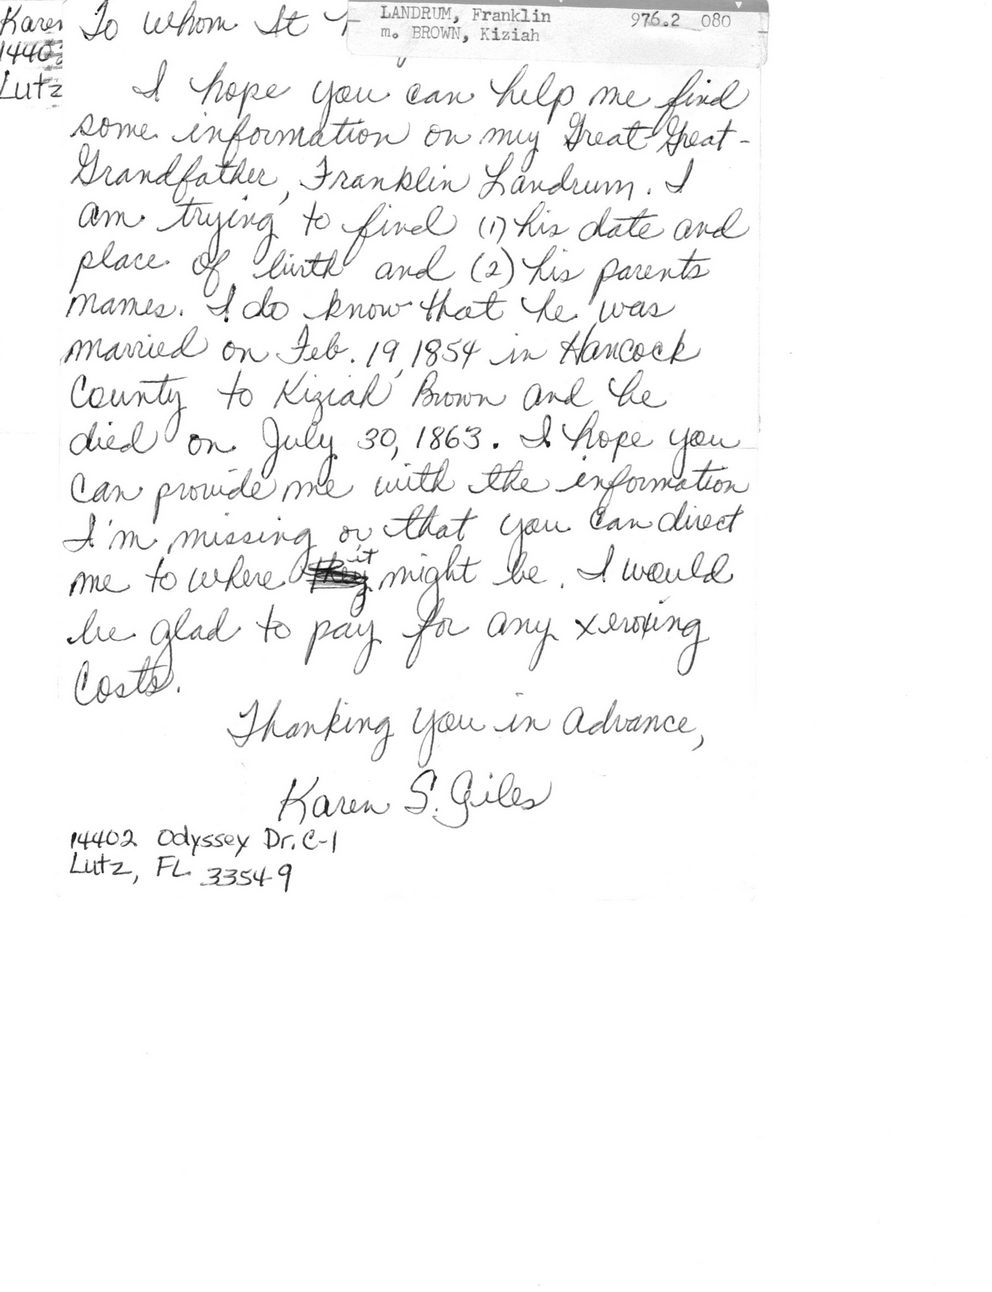 LANDRUM, Franklin 976.2 080
m. BROWN, Kiziah
Karen
14402
Lutz
To Whom It
I hope you can help me find
some information on my Great-Great-
Grandfather, Franklin Landrum. I
am trying to find (1) his date and
place of birth and (2) his parents
names. I do know that he was
married on Feb. 19, 1854 in Hancock
County to Kiziah Brown and he
died on July 30, 1863. I hope you
can provide me with the information
I'm missing or that you can direct
me to where it might be. I would
be glad to pay for any xeroxing
costs.
Thanking you in advance,
Karen S. Giles
14402 Odyssey Dr. C-1
Lutz, FL 33549